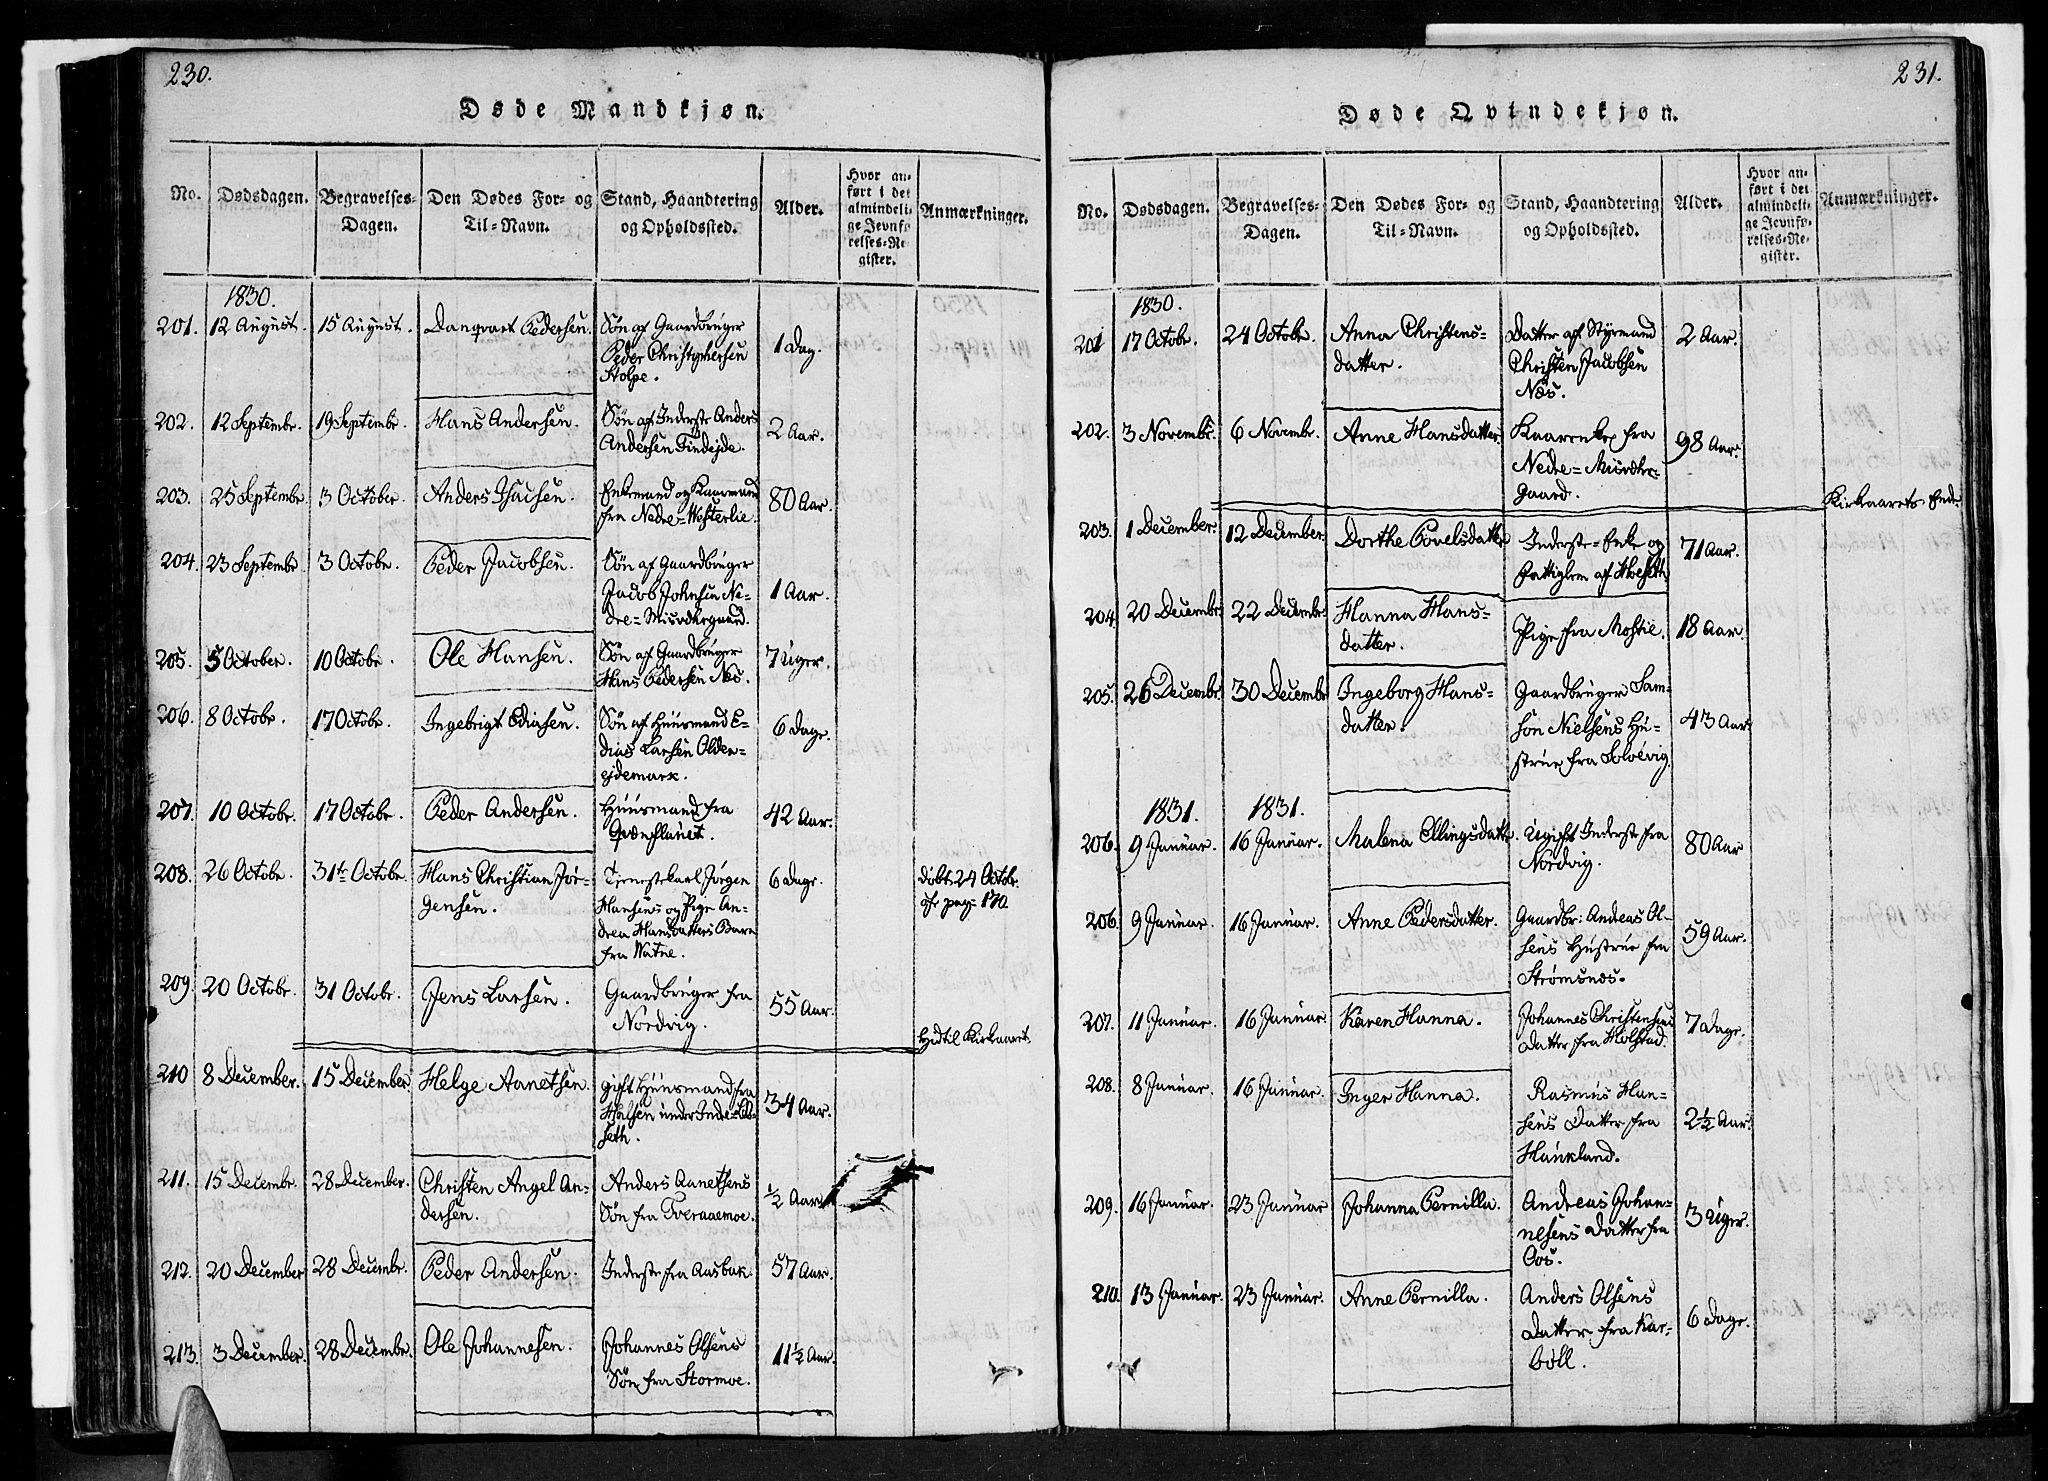 230.
Døde Mandkjøn.
No.
Dødsdagen.
Begravelses-
Dagen.
Den Dødes For- og
Til-Navn.
Stand, Haandtering
og Opholdssted.
Alder.
Hvor an-
ført i det
almindeli-
ge Jevnfø-
relses-Re-
gister.
Anmærkninger.
1830.
201. 12 August. 15 August. Danqvart Pedersen. Søn af Gaardbruger
Peder Christophersen
Stolpe.
1 Dag.
202. 12 Septembr. 19 Septembr. Hans Andersen. Søn af Inderst Anders
Andersen Findejde.
2 Aar.
203. 25 Septembr. 3 October. Anders Isacsen. Enkemand og Kaarmand
fra Nedre-Westerlie.
80 Aar.
204. 23 Septembr. 3 Octobr. Peder Jacobsen. Søn af Gaardbruger
Jacob Johnsen Ne-
dre-Misværgaard.
1 Aar.
205. 5 October. 10 Octobr. Ole Hansen. Søn af Gaardbruger
Hans Pedersen Næs.
7 Uger.
206. 8 Octobr. 17 Octobr. Ingebrigt Ediasen. Søn af Huusmand E-
dias Larsen Older-
ejdemark.
6 Dage.
207. 10 Octobr. 17 Octobr. Peder Andersen. Huusmand fra
Grønflauet.
42 Aar.
208. 26 Octobr. 31te Octobr. Hans Christian Jør-
gensen.
Tjenestekarl Jørgen
Hansens og Pige An-
drea Hansdatters Barn
fra Watne.
6 Dage.
døbt 24 Octobr.
cfr pag: 170.
209. 20 Octobr. 31 Octobr. Jens Larsen. Gaardbruger fra
Nordvig.
55 Aar.
Hidtil Kirkaaret.
210 8 December. 15 December. Helge Aanetsen. gift Huusmand fra
Halsen under
seth.
34 Aar.
211. 15 Decembr. 28 December. Christen Angel An-
dersen.
Anders Aanetsens
Søn fra Tveraaemoe.
½ Aar
212. 20 December 28 Decembr. Peder Andersen. Inderst fra Aasbak. 57 Aar.
213. 3 December. 28 Decembr. Ole Johannesen. Johannes Olsens
Søn fra Stormoe.
11½ Aar.
231.
Døde Qvindekjøn.
No.
Dødsdagen.
Begravelses-
Dagen.
Den Dødes For- og
Til-Navn.
Stand, Haandtering
og Opholdssted.
Alder.
Hvor an-
ført i det
almindeli-
ge Jevnfø-
relses-Re-
gister.
Anmærkninger.
1830.
201 17 Octobr. 24 Octobr. Anna Christens-
datter.
Datter af Styrmand
Christen Jacobsen
Næs.
2 Aar.
202. 3 Novembr. 6 Novembr. Anne Hansdatter Kaarenke fra
Nedre-Misvær-
gaard.
98 Aar.
Kirkaarets Ende
203. 1 December. 12 December. Dorthe Povelsdatter Inderst-Enke og
Fattiglem af Hoseth
71 Aar.
204. 20 Decembr. 22 Decembr. Hanna Hans-
datter.
Pige fra Mohlie. 18 Aar
205. 26 Decembr. 30 Decembr Ingeborg Hans-
datter.
Gaardbruger Sam-
son Nielsens Hu-
strue fra Soløevig.
43 Aar.
1831. 1831.
206. 9 Januar. 16 Januar. Malena Ellingsdatter Ugift Inderst fra
Nordvig.
80 Aar
206. 9 Januar. 16 Januar. Anne Pedersdatter. Gaardbr: Andreas Ol-
sens Hustrue fra
Strømsnæs.
59 Aar.
207. 11 Januar. 16 Januar. Karen Hanna. Johannes Christensens
Datter fra Holstad.
7 Dage.
208. 8 Januar. 16 Januar. Inger Hanna. Rasmus Han-
sens Datter fra
Haukland.
2½ Aar.
209. 16 Januar. 23 Januar Johanna Pernilla. Andreas Johan-
nesens Datter fra
Oos.
3 Uger.
210. 13 Januar. 23 Januar. Anne Pernilla. Anders Olsens
Datter fra Kar-
bøll.
6 Dage.